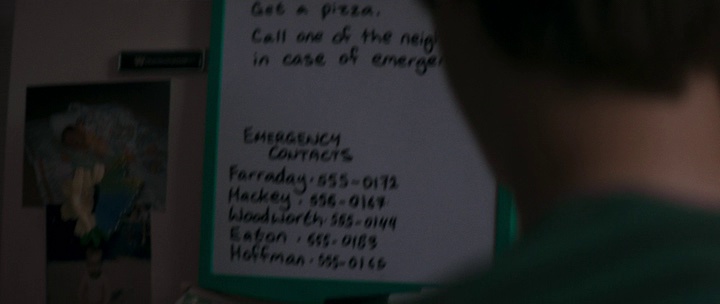 Get a pizza.
Call one of the neig
in case of emerge
EMERGENCY
CONTACTS
Farraday · 555-0172
Hackey · 556-0164
Woodworth · 555-0144
Eaton · 555-0183
Hoffman · 555-0165